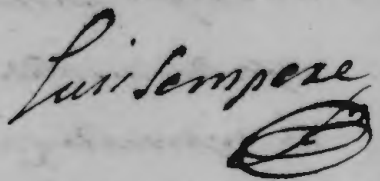 Luis Sempere